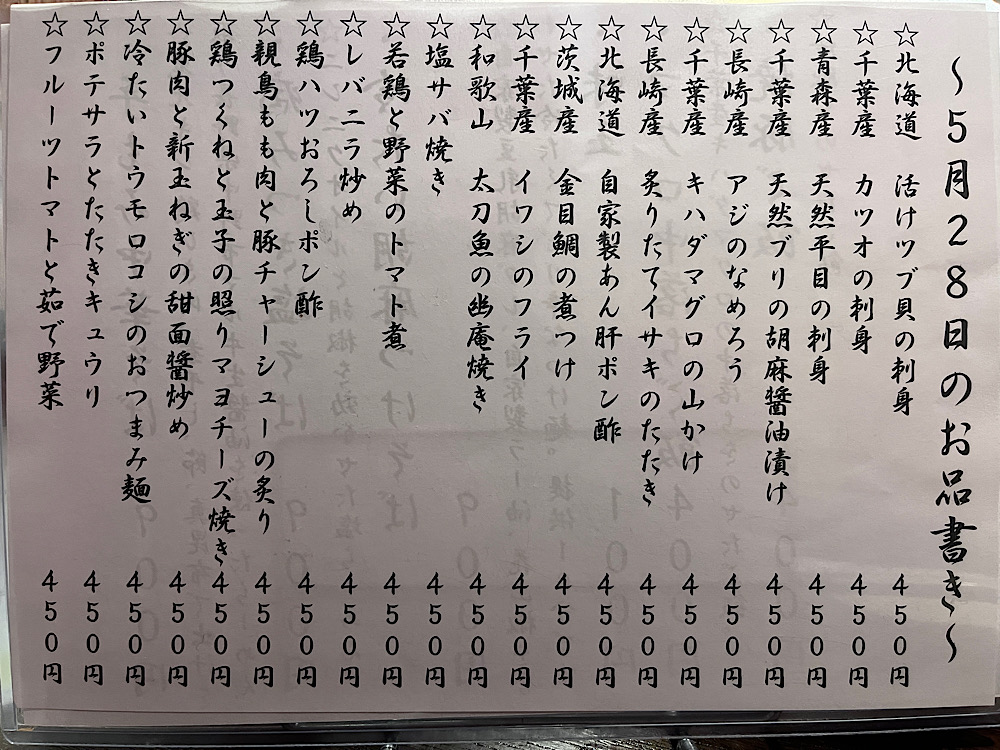 ～５月２８日のお品書き～
☆北海道　活けツブ貝の刺身　４５０円
☆千葉産　カツオの刺身　４５０円
☆青森産　天然平目の刺身　４５０円
☆千葉産　天然ブリの胡麻醤油漬け　４５０円
☆長崎産　アジのなめろう　４５０円
☆千葉産　キハダマグロの山かけ　４５０円
☆長崎産　炙りたてイサキのたたき　４５０円
☆北海道　自家製あん肝ポン酢　４５０円
☆茨城産　金目鯛の煮つけ　４５０円
☆千葉産　イワシのフライ　４５０円
☆和歌山　太刀魚の幽庵焼き　４５０円
☆塩サバ焼き　４５０円
☆若鶏と野菜のトマト煮　４５０円
☆レバニラ炒め　４５０円
☆鶏ハツおろしポン酢　４５０円
☆親鳥もも肉と豚チャーシューの炙り　４５０円
☆鶏つくねと玉子の照りマヨチーズ焼き　４５０円
☆豚肉と新玉ねぎの甜面醤炒め　４５０円
☆冷たいトウモロコシのおつまみ麺　４５０円
☆ポテサラとたたきキュウリ　４５０円
☆フルーツトマトと茹で野菜　４５０円